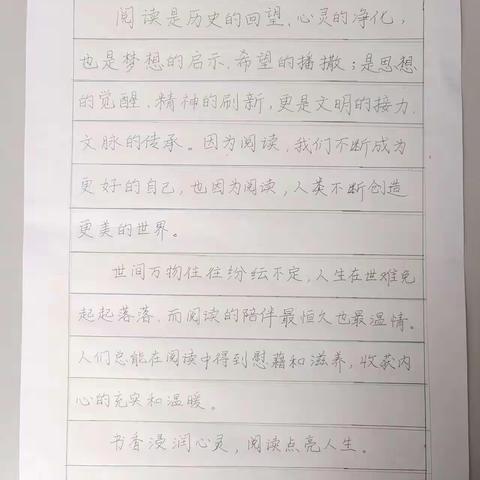 阅读是历史的回望、心灵的净化，
也是梦想的启示、希望的播撒；是思想
的觉醒、精神的刷新，更是文明的接力、
文脉的传承。因为阅读，我们不断成为
更好的自己，也因为阅读，人类不断创造
更美的世界。
世间万物往往纷纭不定，人生在世难免
起起落落，而阅读的陪伴最恒久也最温情。
人们总能在阅读中得到慰藉和滋养，收获内
心的充实和温暖。
书香浸润心灵，阅读点亮人生。